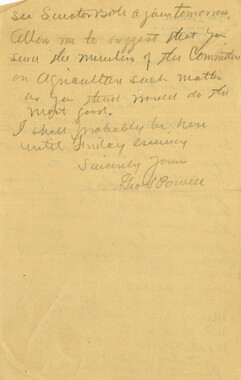 see Senator Bob again tomorrow.
Allow me to suggest that you
send the members of the Committee
on Agriculture such matter
as you think would do the
most good.
I shall probably be here
until Friday evening
Sincerely Yours
Geo S Powell